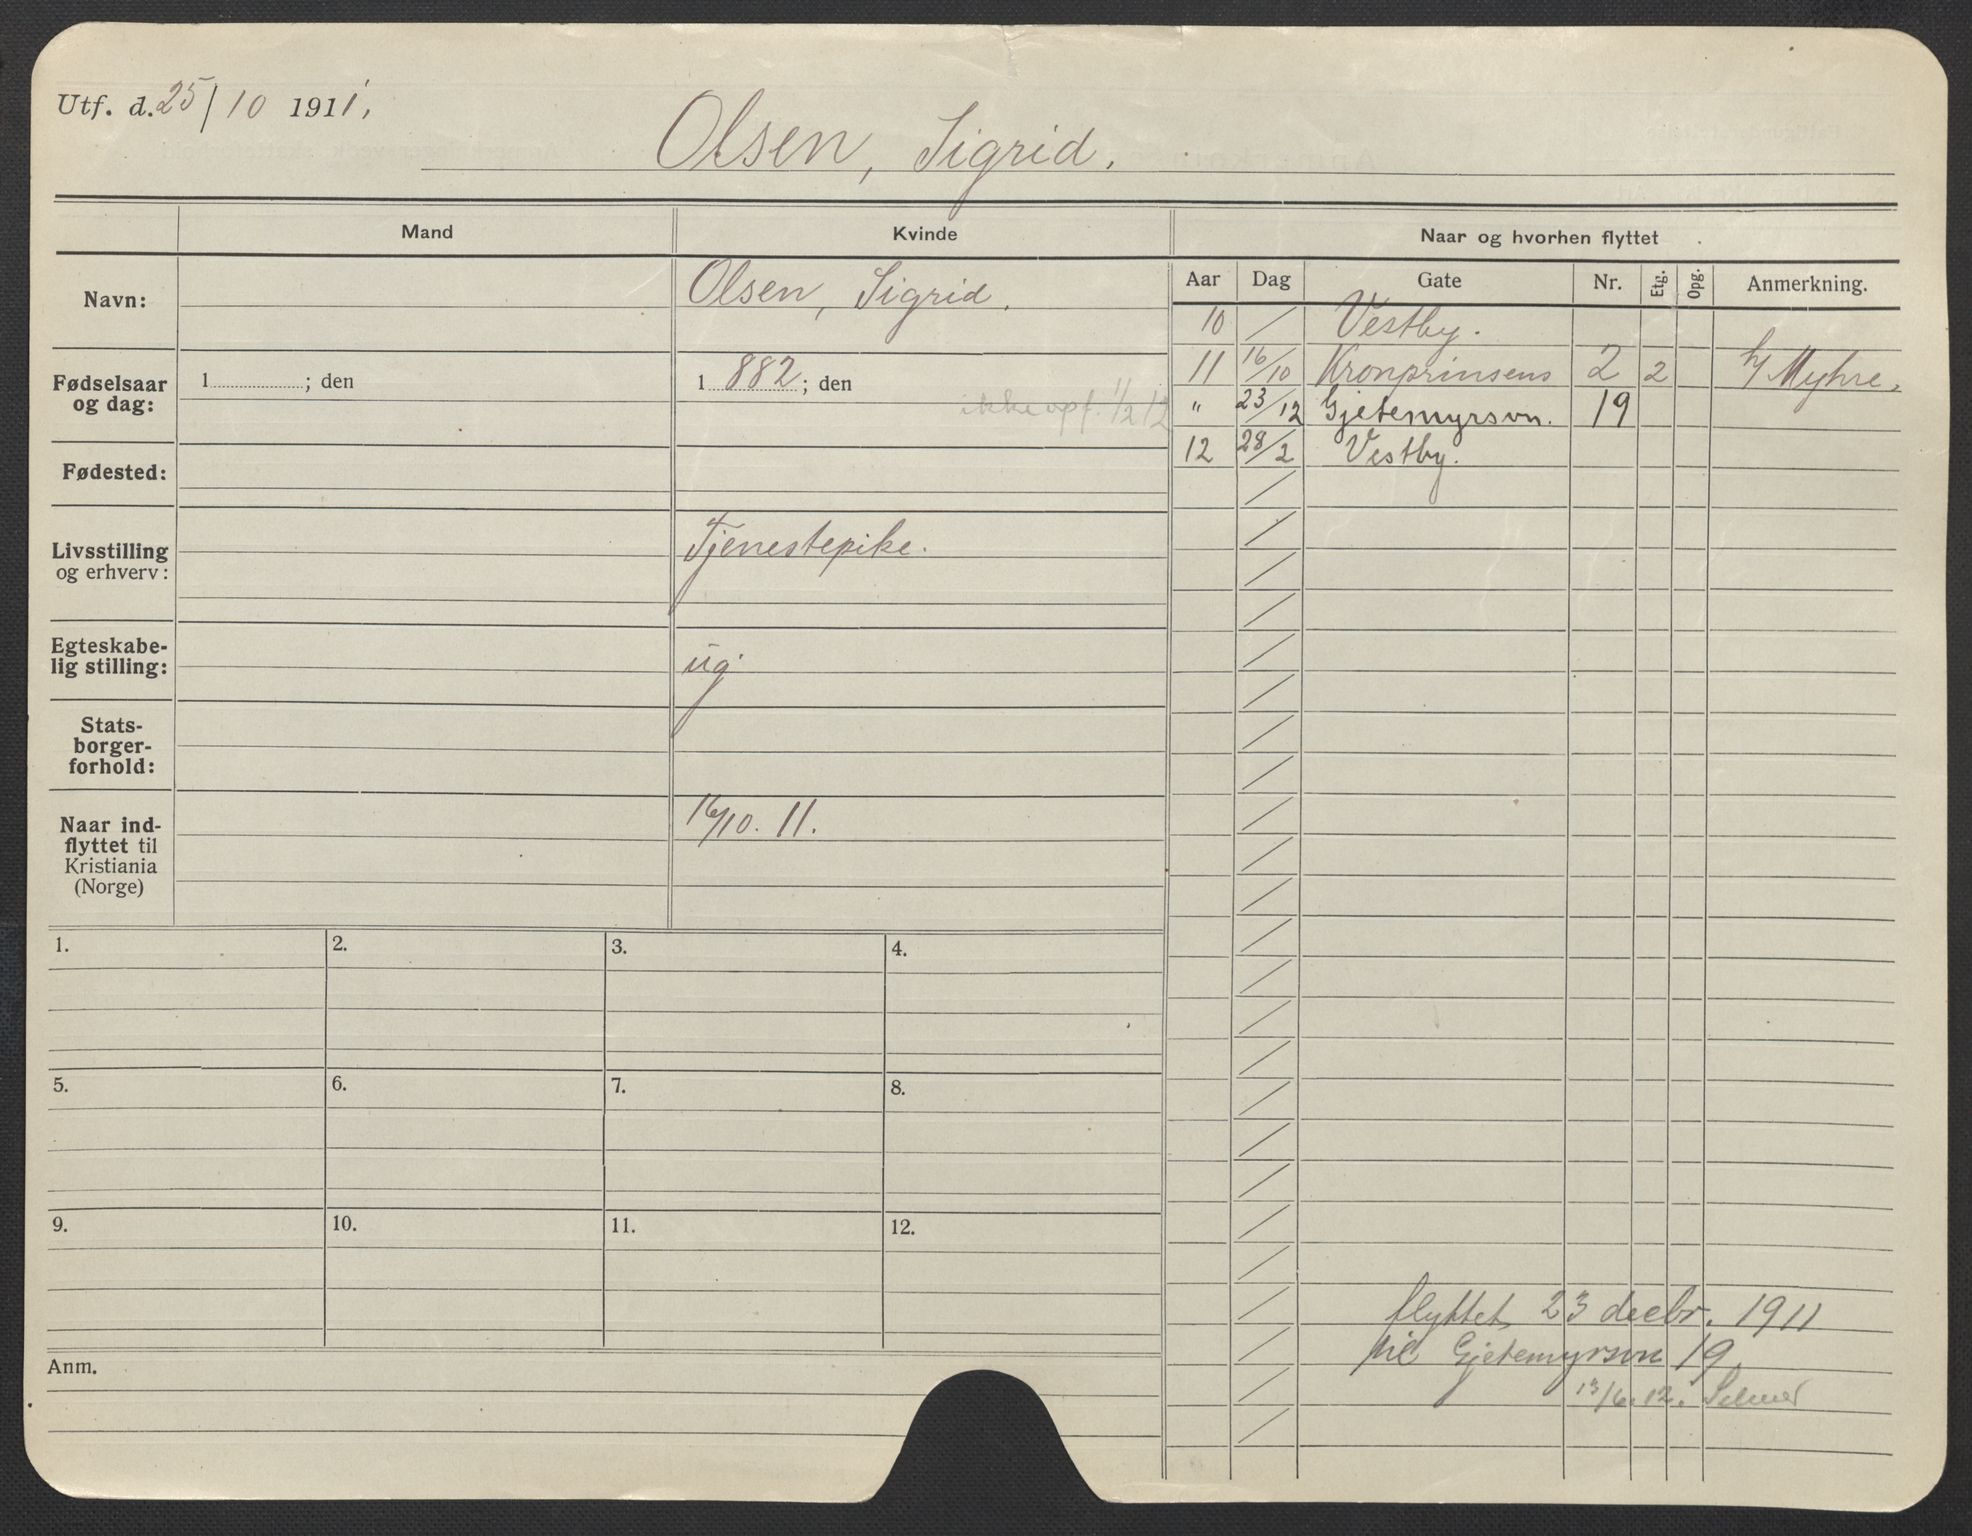 Utf. d. 25/10 1911.
Olsen, Sigrid.
Mand
Kvinde
Naar og hvorhen flyttet
Aar Dag Gate Nr. Etg. Opg. Anmerkning.
Navn:
Olsen, Sigrid.
10 / Vestby.
11 16/10 Kronprinsens 2 2 h/ Myhre.
" 23/12 Gjetemyrsvn. 19
12 28/2 Vestby.
Fødselsaar
og dag:
1 ; den
1 882 ; den
ikke opf. 1/2 12
Fødested:
Livsstilling
og erhverv:
Tjenestepike.
Egteskabe-
lig stilling:
ug.
Stats-
borger-
forhold:
Naar ind-
flyttet til
Kristiania
(Norge)
16/10. 11.
1. 2. 3. 4.
5. 6. 7. 8.
9. 10. 11. 12.
Anm.
flyttet 23 decbr. 1911
til Gjetemyrsvn 19
13/6.12.